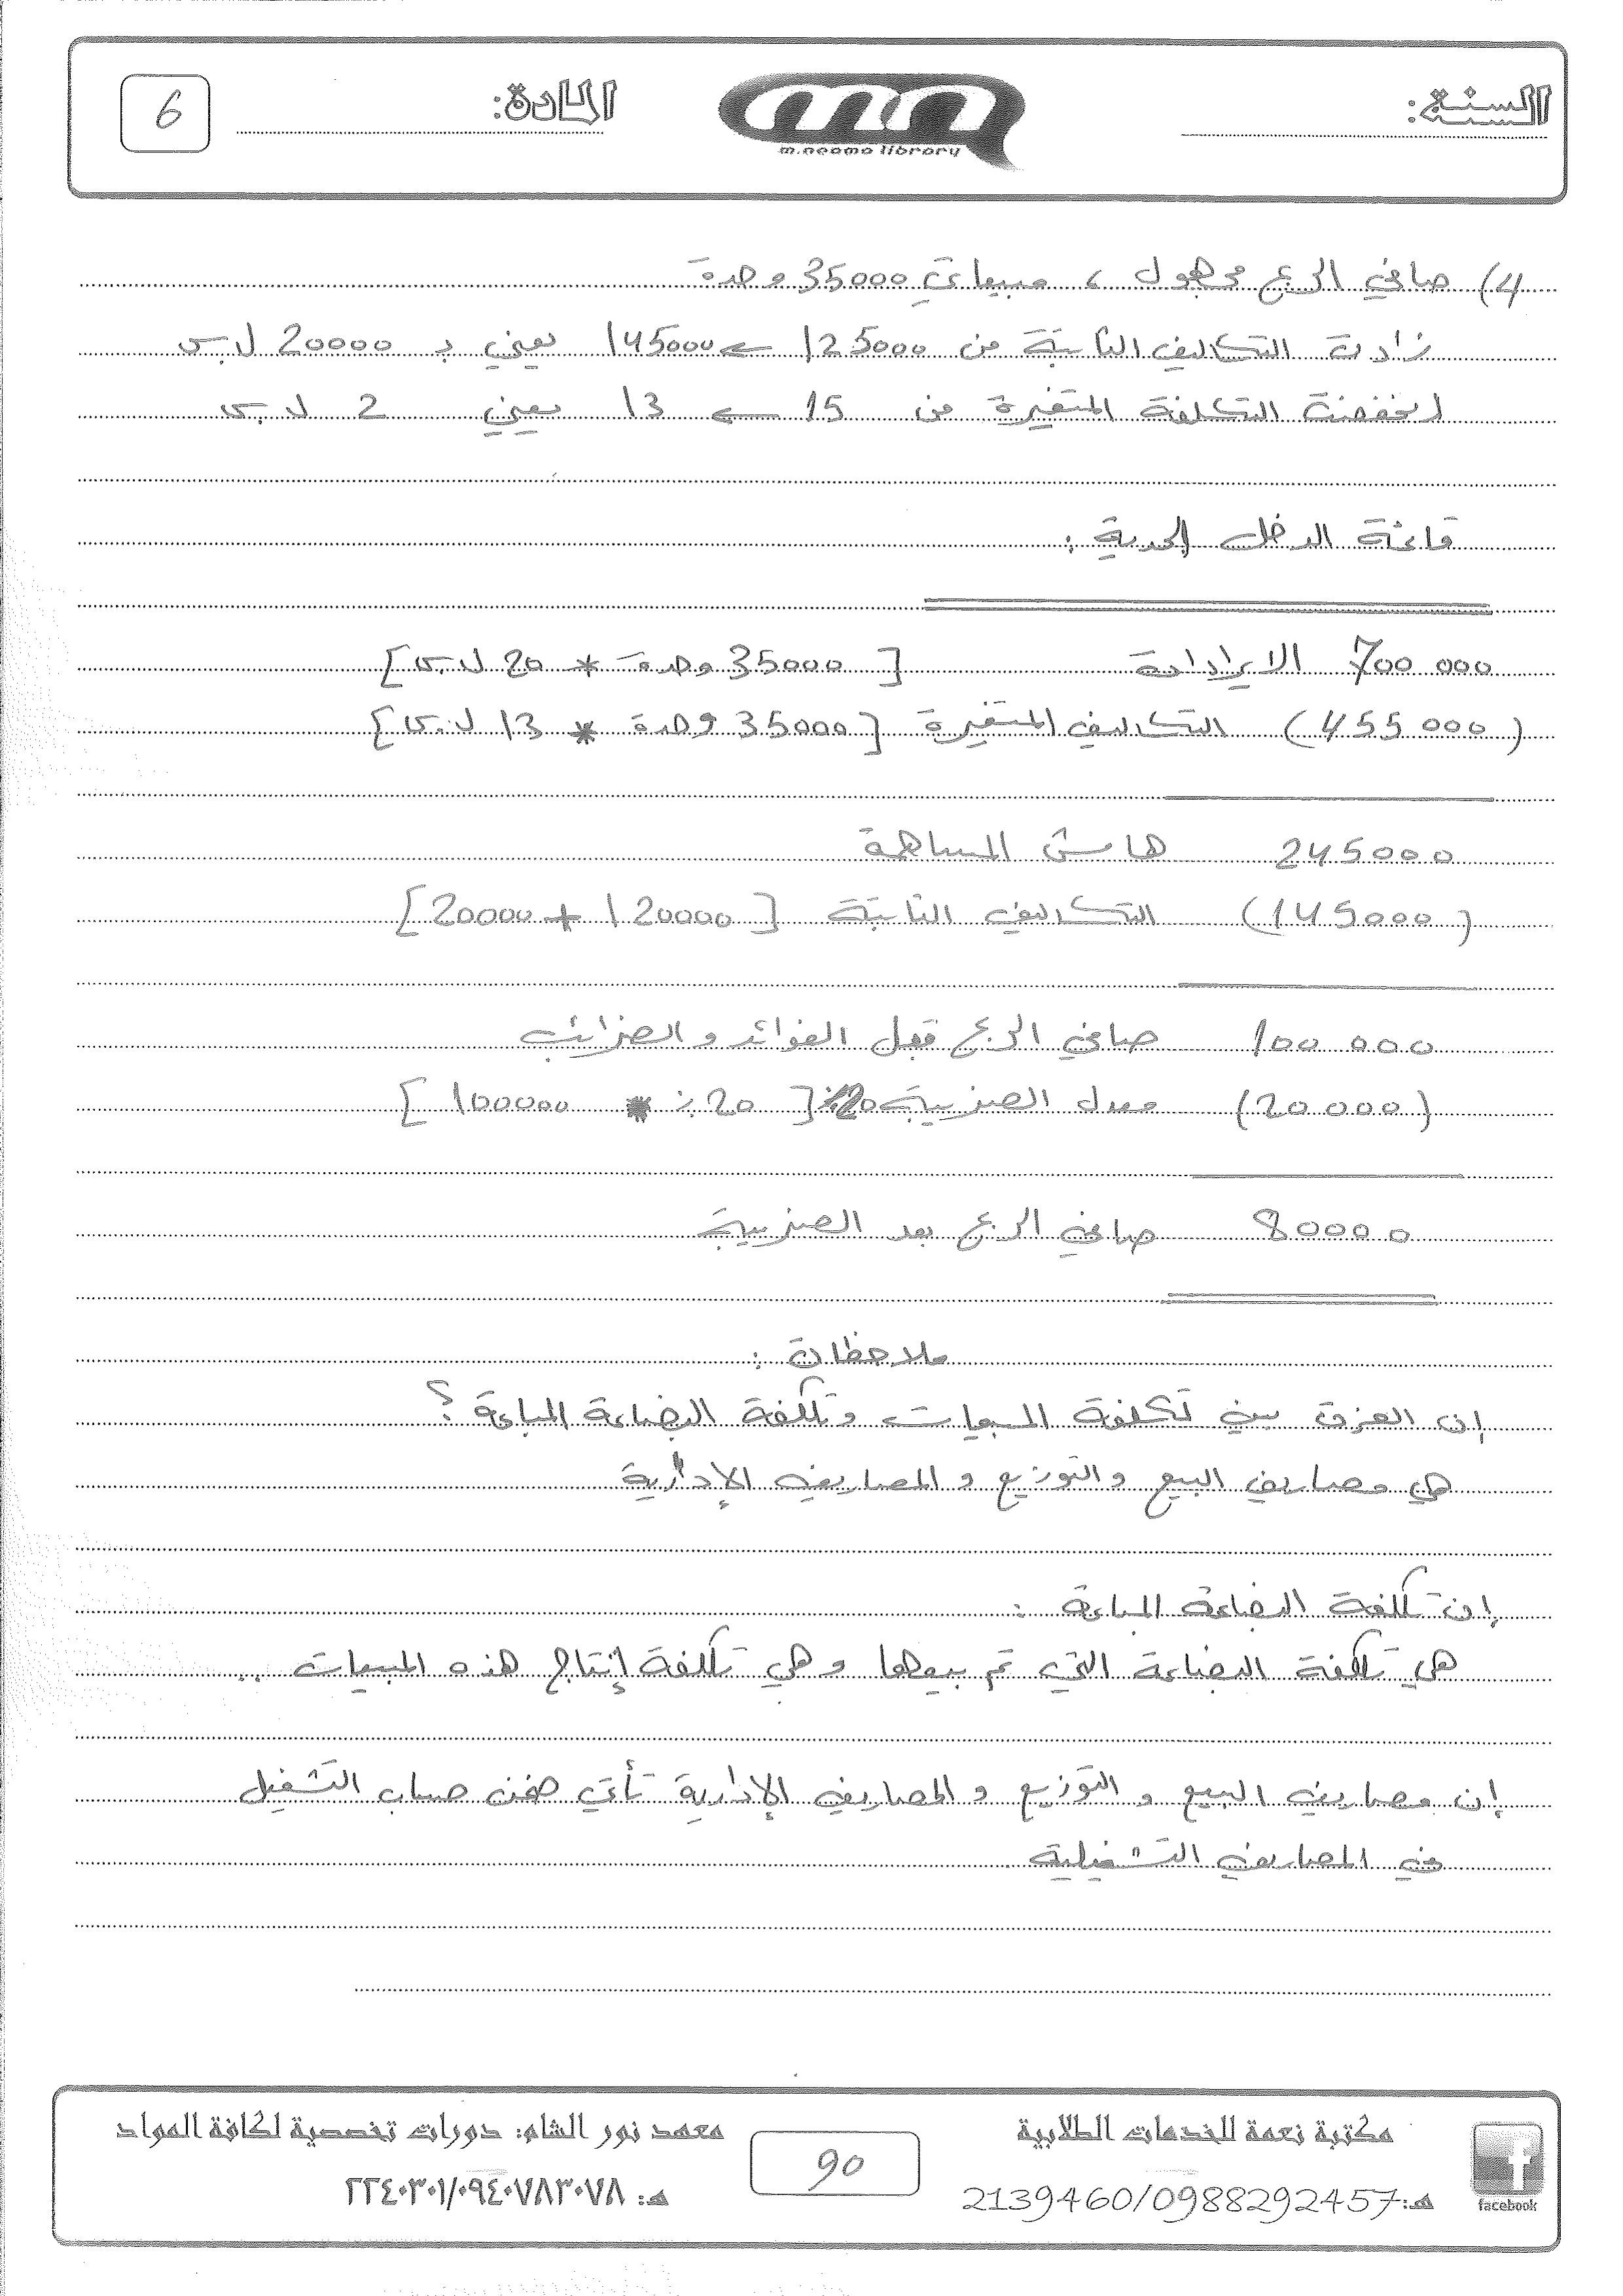 السنة:
m.neama library
المادة:
6
4) صافي الربح مجهول ، مبيعاتي 35000 وحدة
زادت التكاليف الثابتة من 125000 ← 145000 يعني بـ 20000 ل.س
انخفضت التكلفة المتغيرة من 15 ← 13 يعني 2 ل.س
قائمة الدخل الحدية :
700 000 الايرادات [35000 وحدة * 20 ل.س]
(455 000) التكاليف المتغيرة [35000 وحدة * 13 ل.س]
245000 هامش المساهمة
(145000) التكاليف الثابتة [120000 + 20000]
100 000 صافي الربح قبل الفوائد و الضرائب
(20 000) معدل الضريبة 20% [20% * 100000]
80000 صافي الربح بعد الضريبة
ملاحظات :
إن الفرق بين تكلفة المبيعات و تكلفة البضاعة المباعة ؟
هي مصاريف البيع والتوزيع و المصاريف الإدارية
إن تكلفة البضاعة المباعة :
هي تكلفة البضاعة التي تم بيعها و هي تكلفة إنتاج هذه المبيعات ..
إن مصاريف البيع و التوزيع و المصاريف الإدارية تأتي ضمن حساب التشغيل
في المصاريف التشغيلية
مكتبة نعمة للخدمات الطلابية
هـ: 2139460/0988292457
facebook
90
معهد نور الشام: دورات تخصصية لكافة المواد
هـ: ٢٢٤٠٣٠١/٠٩٤٠٧٨٣٠٧٨